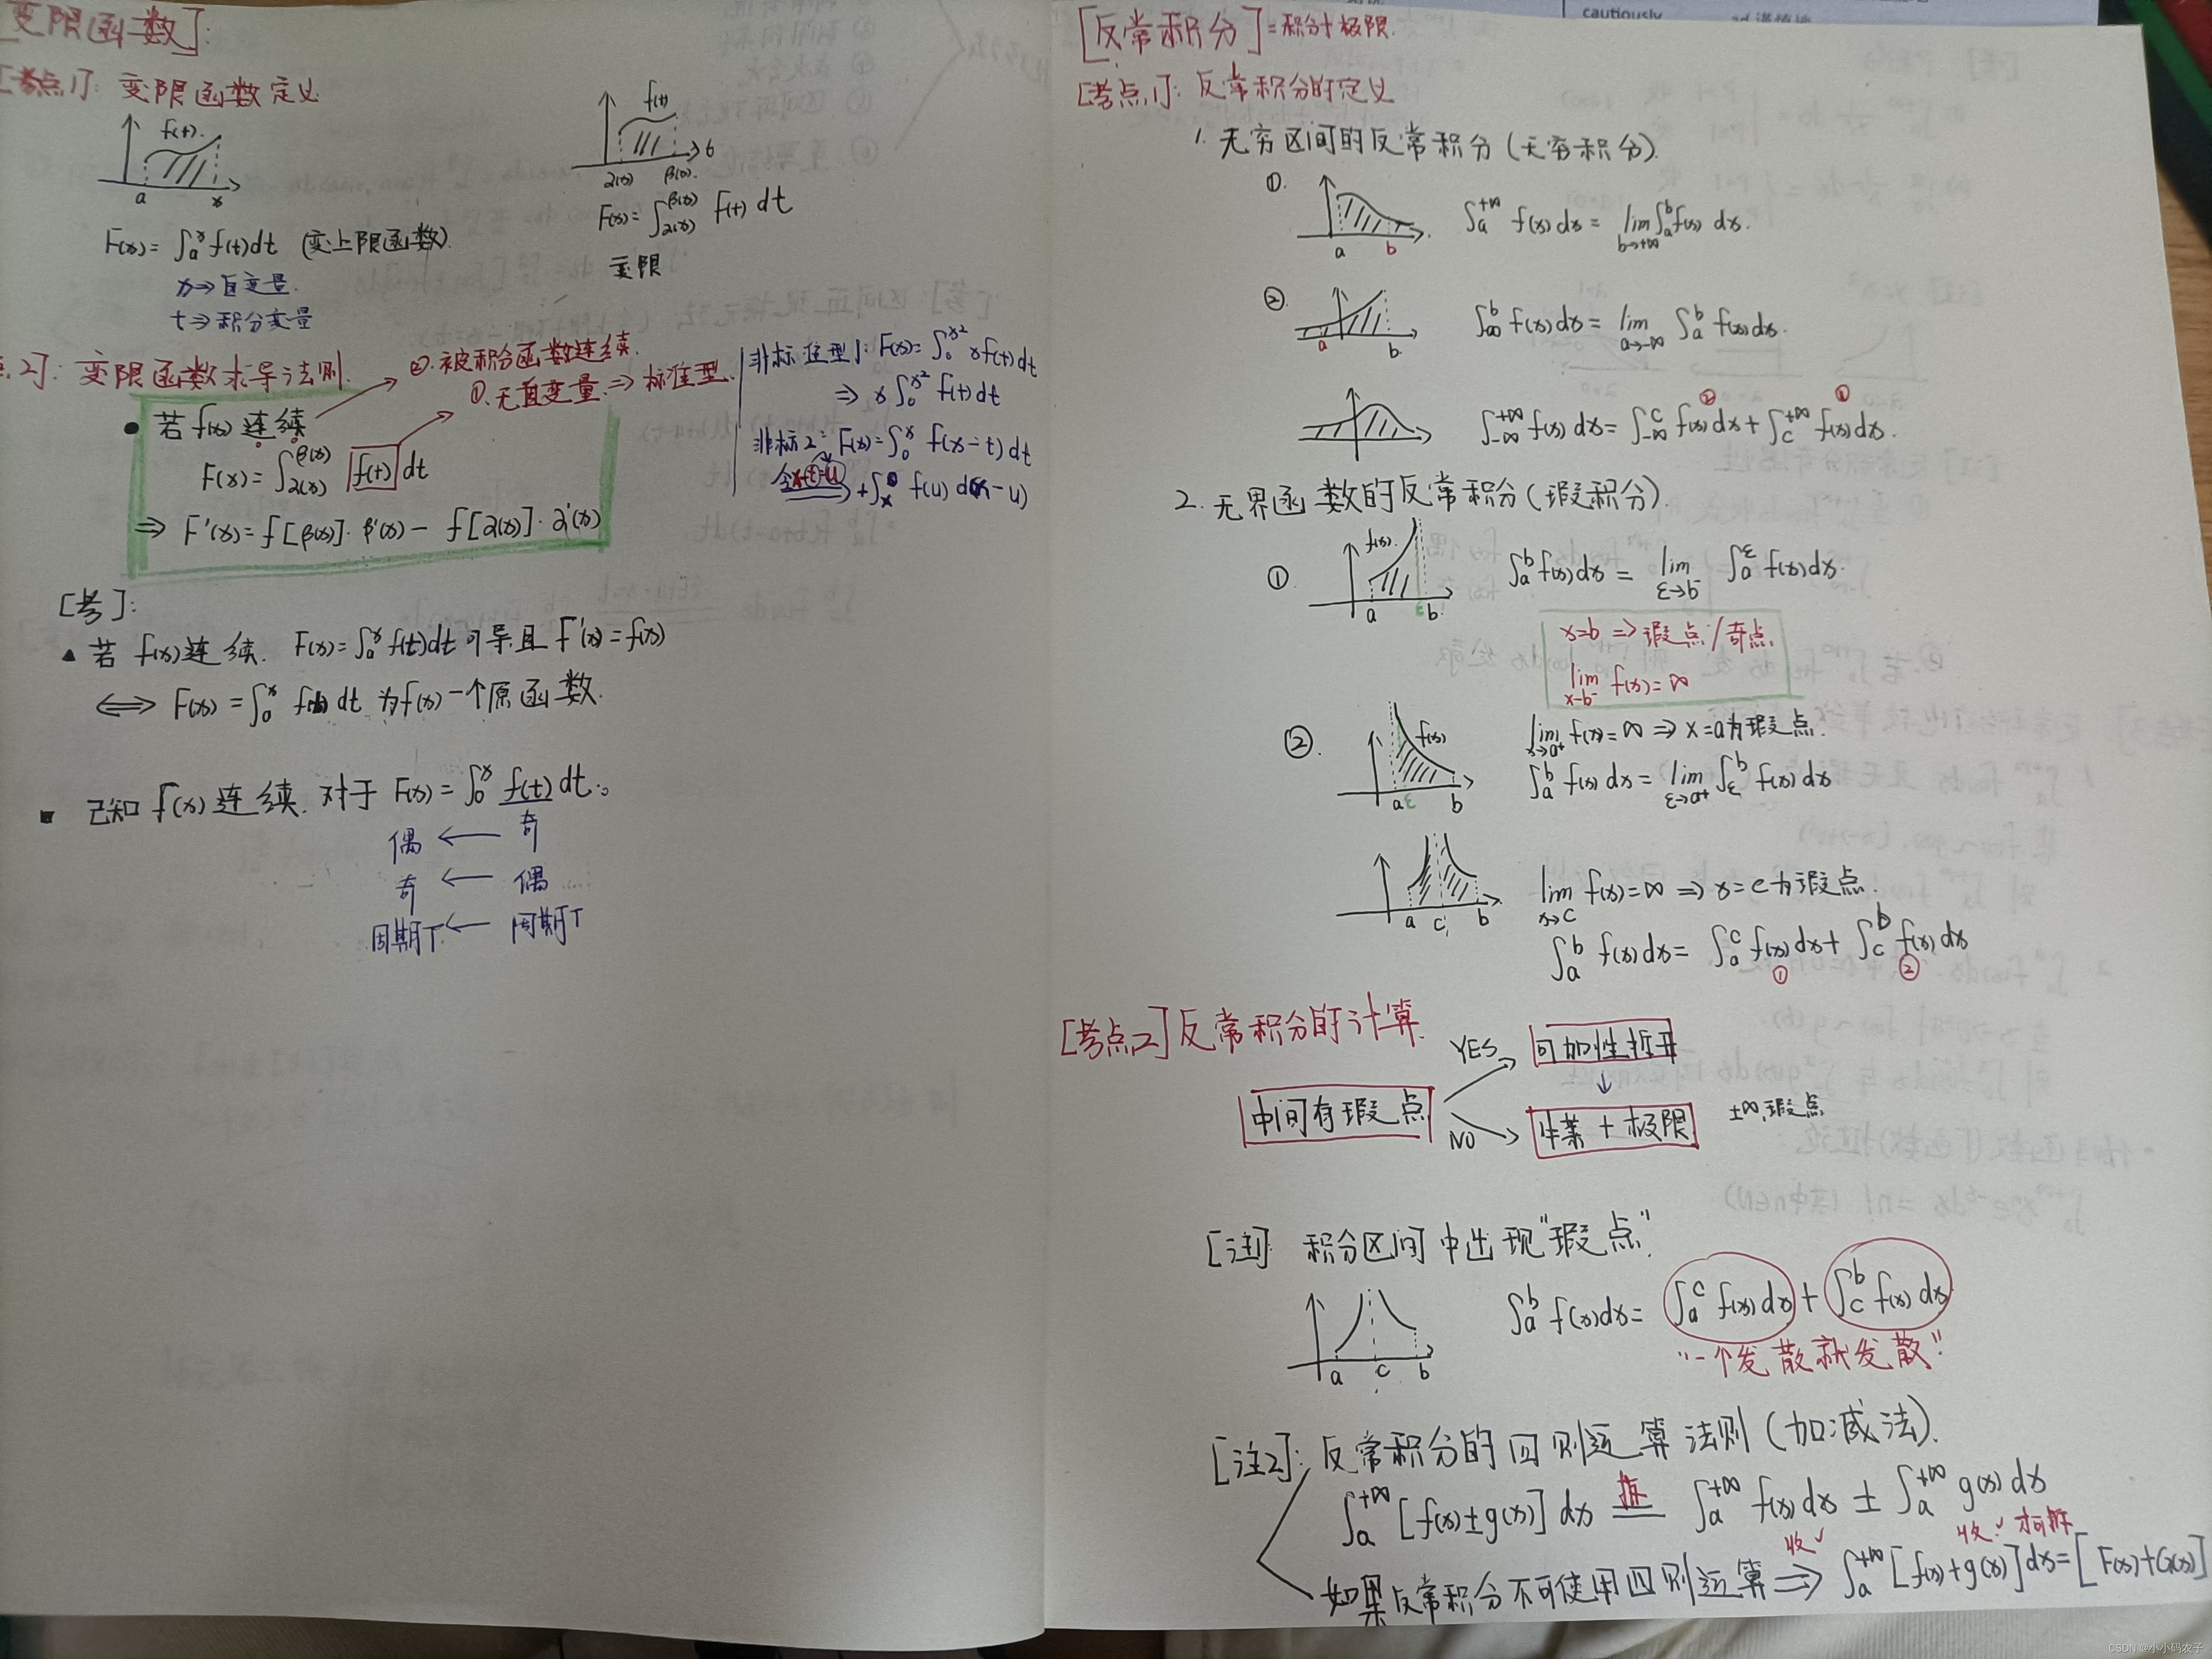 [变限函数]:
[考点1]: 变限函数定义
f(t)
a x
F(x)=∫ₐˣ f(t)dt (变上限函数).
x⇒自变量.
t⇒积分变量
f(t)
α(x) β(x)
F(x)=∫_{α(x)}^{β(x)} f(t) dt
变限
点2]: 变限函数求导法则.
②.被积分函数连续.
①.无自变量.⇒标准型.
• 若f(x)连续
F(x)=∫_{α(x)}^{β(x)} f(t) dt
⇒ F'(x)=f[β(x)]·β'(x)- f[α(x)]·α'(x)
非标准型1: F(x)=∫₀^{x²} xf(t)dt
⇒ x∫₀^{x²} f(t)dt
非标2: F(x)=∫₀ˣ f(x-t)dt
f(u) d(x-u)
[考]:
▲ 若 f(x)连续. F(x)=∫ₐˣ f(t)dt可导且F'(x)=f(x)
⟺ F(x)=∫₀ˣ dt 为f(x)一个原函数.
■ 已知f(x)连续. 对于F(x)=∫₀ˣ f(t)dt:
偶 ← 奇
奇 ← 偶
周期T ← 周期T
[反常积分]=积分+极限.
[考点1]: 反常积分的定义
1. 无穷区间的反常积分(无穷积分).
①.
a b
∫ₐ^{+∞} f(x)dx = lim_{b→+∞}∫ₐᵇ f(x) dx.
②.
a b.
∫_{∞}^b f(x)dx = lim_{a→-∞} ∫ₐᵇ f(x)dx.
② ①
∫_{-∞}^{+∞} f(x) dx=∫_{-∞}^c f(x)dx+∫_c^{+∞} f(x)dx.
2. 无界函数的反常积分(瑕积分).
①
f(x)
a ε b
∫ₐᵇ f(x)dx = lim_{ε→b⁻} ∫ₐ^ε f(x)dx.
x=b ⇒瑕点/奇点.
lim_{x→b⁻} f(x)=∞
②.
f(x)
a ε b
lim_{x→a⁺} f(x)=∞ ⇒ x=a为瑕点.
∫ₐᵇ f(x) dx=lim_{ε→a⁺}∫_ε^b f(x)dx
a c b
lim_{x→c} f(x)=∞ ⇒ x=c为瑕点.
∫ₐᵇ f(x)dx= ∫ₐᶜ f(x)dx+ ∫_c^b f(x)dx
① ②
[考点2]反常积分的计算.
YES
可加性拆开
中间有瑕点
NO
牛莱+极限
±∞,瑕点
[注1] 积分区间中出现"瑕点".
a c b
∫ₐᵇ f(x)dx= ∫ₐᶜ f(x)dx + ∫_c^b f(x)dx
"一个发散就发散".
[注2]: 反常积分的四则运算法则(加减法).
∫ₐ^{+∞} [f(x)±g(x)] dx =拆= ∫ₐ^{+∞} f(x)dx ± ∫ₐ^{+∞} g(x)dx
收✓ 收✓ 才可拆
如果反常积分不可使用四则运算⇒ ∫ₐ^{+∞} [f(x)+g(x)]dx=[F(x)+G(x)]
cautiously
CSDN @小小码农子